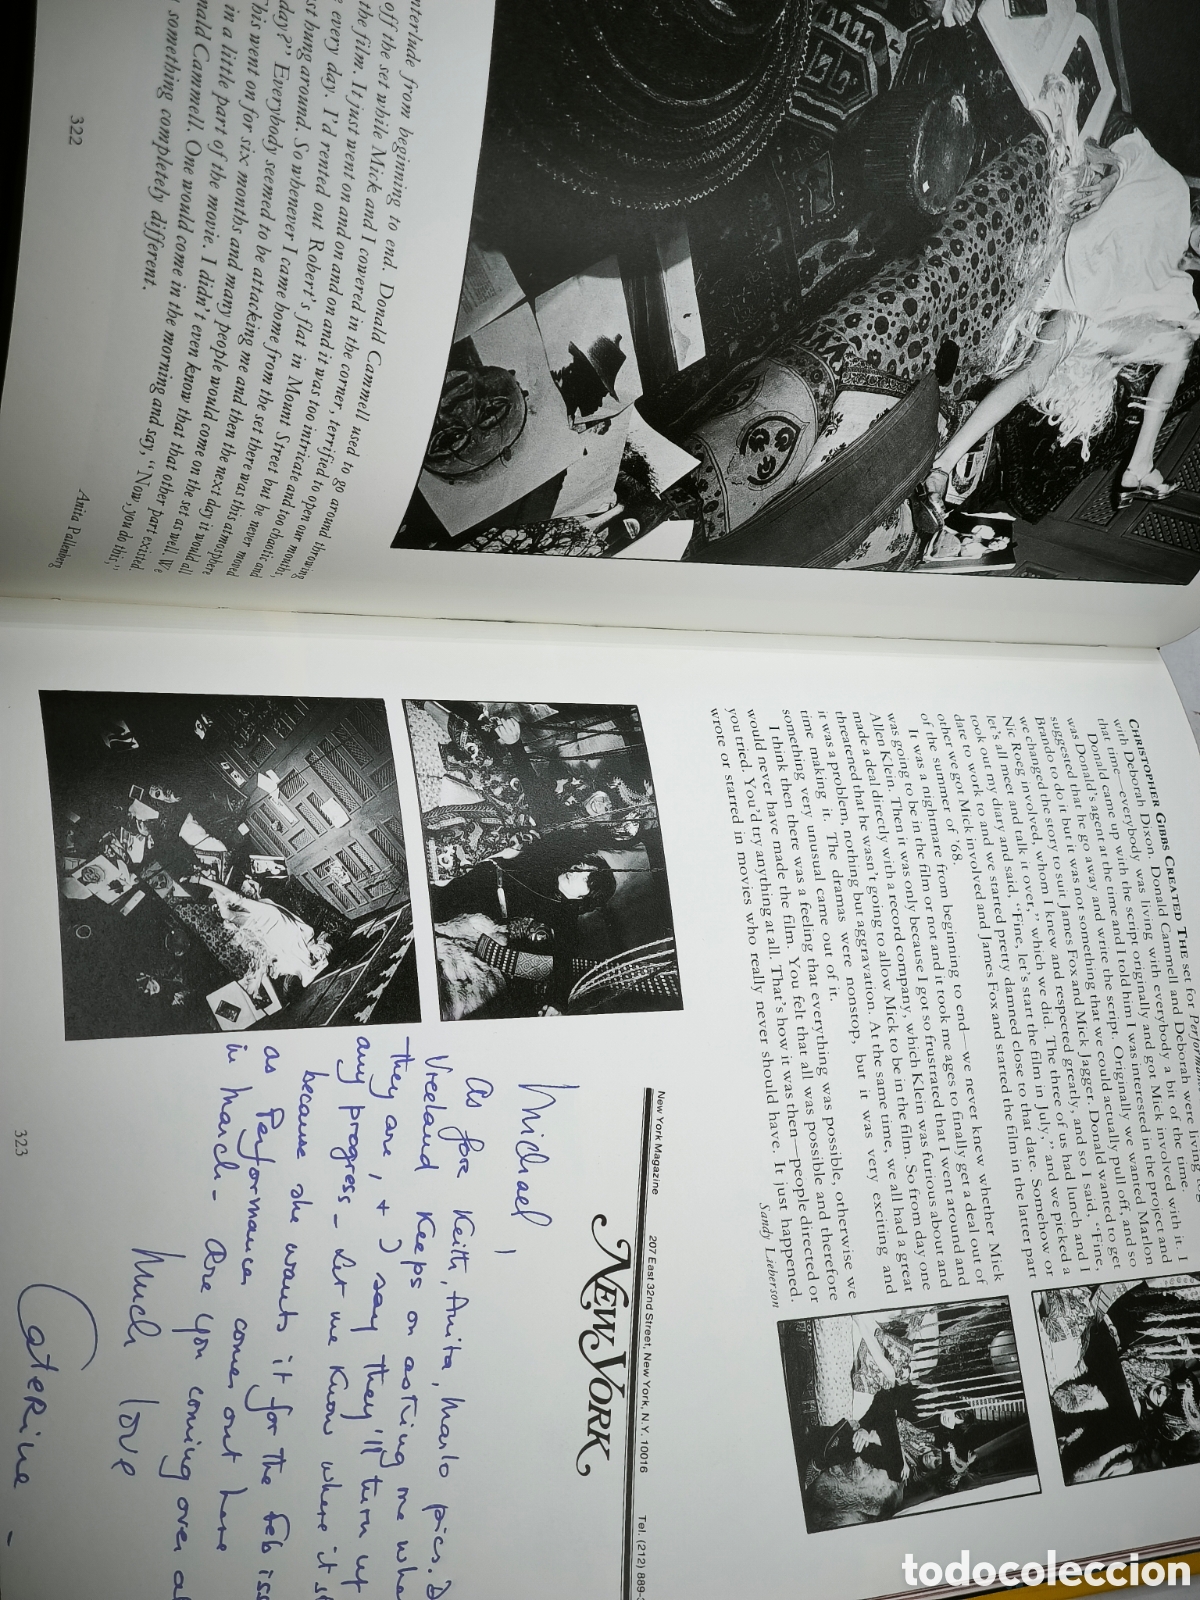 nterlude from beginning to end. Donald Cammell used to go around throwing
off the set while Mick and I cowered in the corner, terrified to open our mouths,
the film. It just went on and on and on and it was too intricate and too chaotic and
every day. I'd rented out Robert's flat in Mount Street but he never moved
st hung around. So whenever I came home from the set there was this atmosphere
day?" Everybody seemed to be attacking me and then the next day it would all
This went on for six months and many people would come on the set as well. We
in a little part of the movie. I didn't even know that that other part existed.
nald Cammell. One would come in the morning and say, "Now, you do this,"
something completely different.
Anita Pallenberg
322
CHRISTOPHER GIBBS CREATED THE set for Performan
with Deborah Dixon. Donald Cammell and Deborah were living
that time—everybody was living with everybody a bit of the time.
Donald came up with the script originally and got Mick involved with it. I
was Donald's agent at the time and I told him I was interested in the project and
suggested that he go away and write the script. Originally we wanted Marlon
Brando to do it but it was not something that we could actually pull off, and so
we changed the story to suit James Fox and Mick Jagger. Donald wanted to get
Nic Roeg involved, whom I knew and respected greatly, and so I said, "Fine,
let's all meet and talk it over," which we did. The three of us had lunch and I
took out my diary and said, "Fine, let's start the film in July," and we picked a
date to work to and we started pretty damned close to that date. Somehow or
other we got Mick involved and James Fox and started the film in the latter part
of the summer of '68.
It was a nightmare from beginning to end—we never knew whether Mick
was going to be in the film or not and it took me ages to finally get a deal out of
Allen Klein. Then it was only because I got so frustrated that I went around and
made a deal directly with a record company, which Klein was furious about and
threatened that he wasn't going to allow Mick to be in the film. So from day one
it was a problem, nothing but aggravation. At the same time, we all had a great
time making it. The dramas were nonstop, but it was very exciting and
something very unusual came out of it.
I think then there was a feeling that everything was possible, otherwise we
would never have made the film. You felt that all was possible and therefore
you tried. You'd try anything at all. That's how it was then—people directed or
wrote or starred in movies who really never should have. It just happened.
Sandy Lieberson
New York Magazine 207 East 32nd Street, New York, N.Y. 10016 Tel. (212) 889-
NEW YORK
Michael,
As for Keith, Anita, Marlo pics. D
Vreeland keeps on asking me whe
they are, + I say they'll turn up
any progress - let me know where it
because she wants it for the Feb iss
as Performance comes out here
in March - are you coming over a
Much love
Caterine -
323
todocoleccion